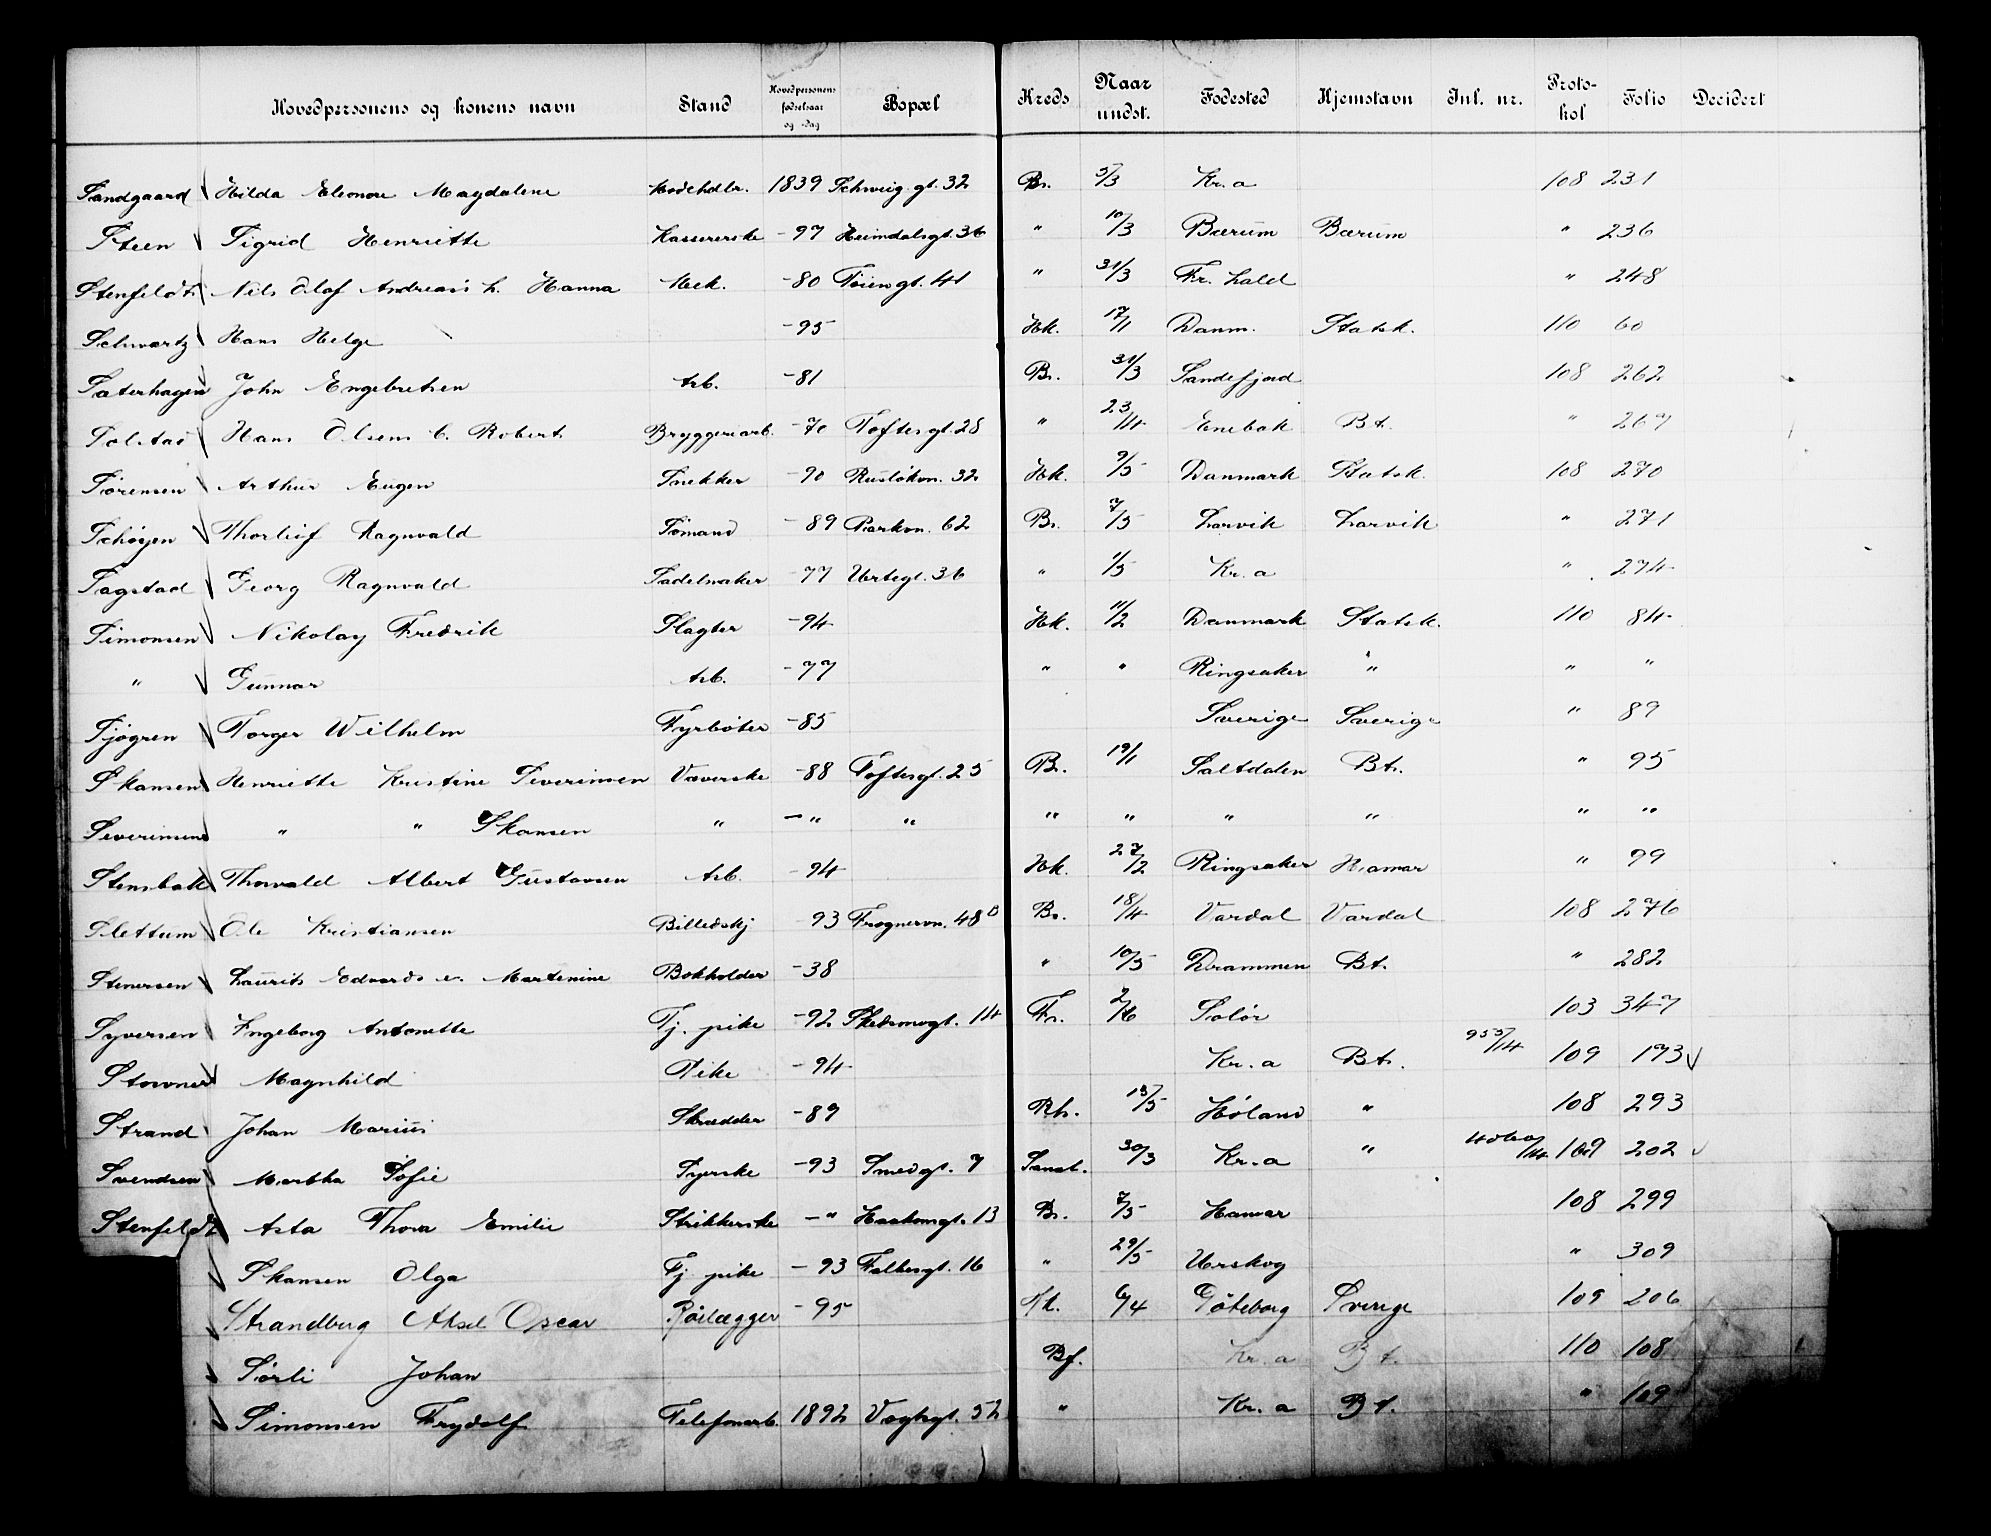 Hovedpersonens og konens navn Stand Hovedpersonens fødselsaar og -dag Bopæl Kreds Naar undst. Fødested Hjemstavn Inl. nr. Protokol Folio Decidert
Sandgaard Hilda Eleonore Magdalene Modehdlr. 1839 Schweig.gt. 32 Br. 5/3 Kr.a 108 231
Steen Sigrid Henriette Kassererske -97 Heimdalsgt. 36 " 10/3 Bærum Bærum " 236
Stenfeldt Nils Olaf Andreas h. Hanna Mek. -80 Tøiengt. 41 " 31/3 Fr. hald " 248
Schwartz Hans Helge -95 Hk. 17/1 Danm. Statsk. 110 60
Sæterhagen John Engebretsen Arb. -81 Br. 31/3 Sandefjord 108 262
Solstad Hans Olsen C. Robert Bryggeriarb. -70 Toftesgt. 28 " 23/4 Enebak Bt. " 267
Sørensen Arthur Eugen Snekker -90 Rusløkvn. 32 Hk. 9/5 Danmark Statsk. 108 270
Schøyen Thorleif Ragnvald Sømand -89 Parkvn. 62 Br. 7/5 Larvik Larvik " 271
Sagstad Georg Ragnvald Sadelmaker -77 Urtegt. 36 " 1/5 Kr.a " 274
Simonsen Nikolay Fredrik Slagter -94 Hk. 11/2 Danmark Statsk. 110 84
" Gunnar Arb. -77 " " Ringsaker " " "
Sjøgren Torger Wilhelm Fyrbøter -85 Sverige Sverige " 89
Skansen Henriette Kristine Severinsen Væverske -88 Toftesgt. 25 Br. 19/1 Saltdalen Bt. " 95
Severinsen " " Skansen " - " " " " " " " "
Stensbak Thorvald Albert Gustavsen Arb. -94 Hk. 27/2 Ringsaker Hamar " 99
Slettum Ole Kristiansen Billedskj -93 Frognervn. 48 B Br. 18/4 Vardal Vardal 108 276
Stenersen Laurits Edvard e. Martenine Bokholder -38 " 10/5 Drammen Bt. " 282
Syversen Ingeborg Antonette Tj. pike -92 Skedsmogt. 14 Fr. 2/6 Solør 103 347
Stovner Magnhild Pike -94 Kr.a Bt. 955/14 109 193
Strand Johan Marius Skrædder -89 Rh. 13/5 Høland " 108 293
Svendsen Martha Sofie Syerske -93 Smedgt. 7 Sanst. 30/3 Kr.a " 4060/14 109 202
Stenfeldt Asta Thora Emilie Strikkerske - " Haakonsgt. 13 Br. 7/5 Hamar 108 299
Skansen Olga Tj. pike -93 Falbesgt. 16 " 29/5 Urskog " 309
Strandberg Aksel Oscar Rørlægger -95 Hk. 6/4 Göteborg Sverige 109 206
Sørli Johan Bf. Kr.a Bt. 110 108
Simonsen Frydolf Telefonarb. 1892 Vogtsgt. 52 " Kr.a Bt. " 109